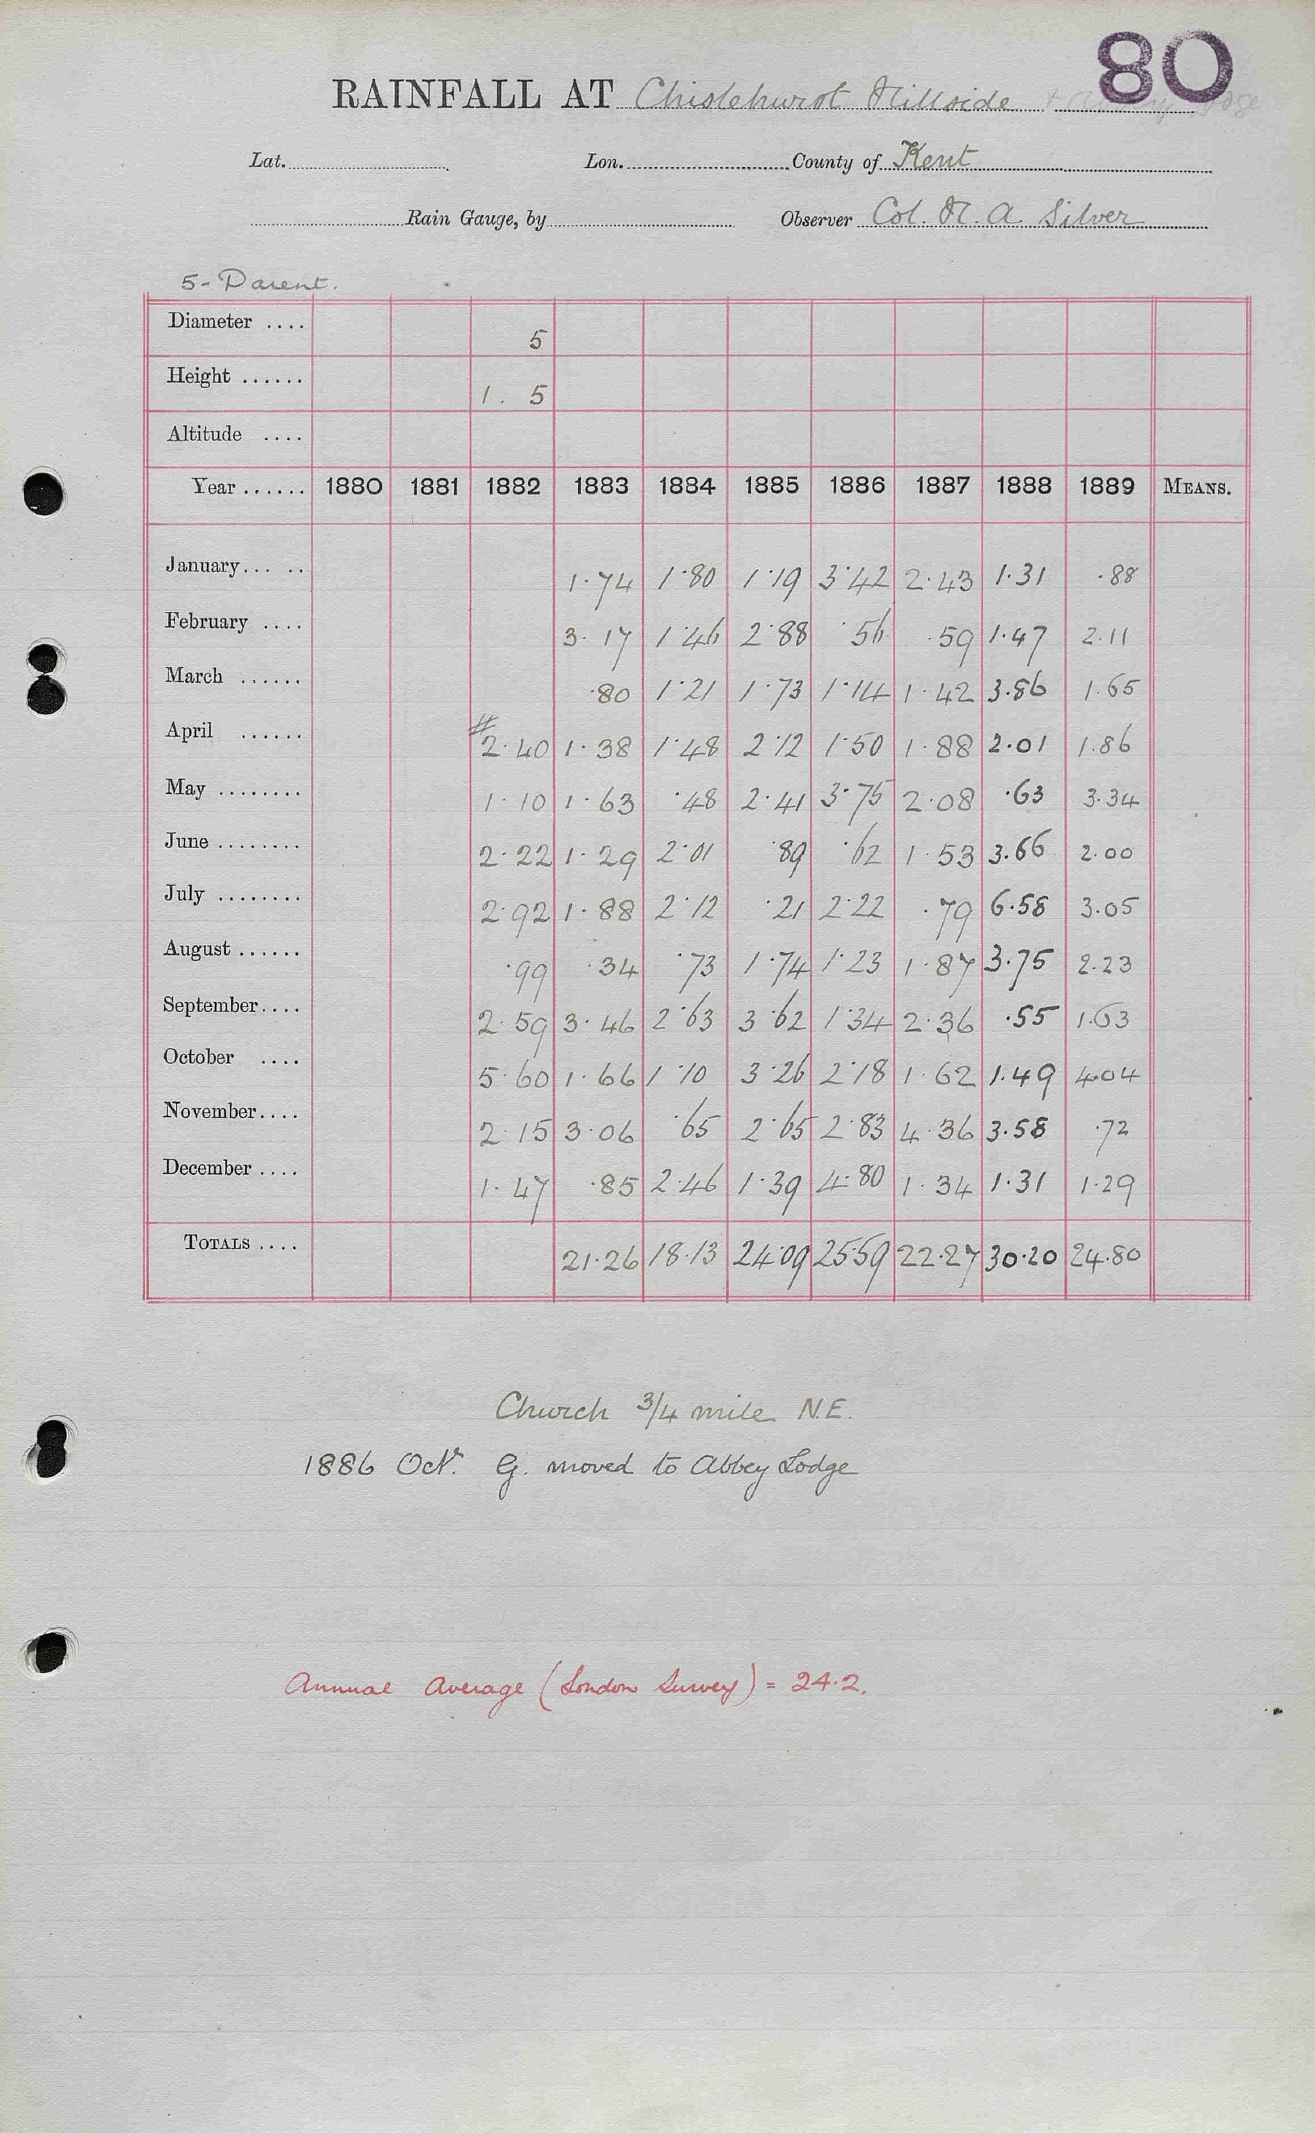 80
RAINFALL AT Chislehurst Hillside
Lat. Lon. County of Kent
Rain Gauge, by Observer Col. H. A. Silver
5-Parent.
Diameter .... 5
Height ...... 1. 5
Altitude ....
Year ...... 1880 1881 1882 1883 1884 1885 1886 1887 1888 1889 MEANS.
January ... .. 1·74 1·80 1·19 3·42 2·43 1·31 ·88
February .... 3·17 1·46 2·88 ·56 ·59 1·47 2·11
March ...... ·80 1·21 1·73 1·14 1·42 3·86 1·65
April ...... # 2·40 1·38 1·48 2·12 1·50 1·88 2·01 1·86
May ........ 1·10 1·63 ·48 2·41 3·75 2·08 ·63 3·34
June ........ 2·22 1·29 2·01 ·89 ·62 1·53 3·66 2·00
July ........ 2·92 1·88 2·12 ·21 2·22 ·79 6·58 3·05
August ...... ·99 ·34 ·73 1·74 1·23 1·87 3·75 2·23
September .... 2·59 3·46 2·63 3·62 1·34 2·36 ·55 1·63
October .... 5·60 1·66 1·10 3·26 2·18 1·62 1·49 4·04
November .... 2·15 3·06 ·65 2·65 2·83 4·36 3·58 ·72
December .... 1·47 ·85 2·46 1·39 4·80 1·34 1·31 1·29
TOTALS .... 21·26 18·13 24·09 25·59 22·27 30·20 24·80
Church 3/4 mile N.E.
1886 Octr. G. moved to Abbey Lodge
Annual Average (London Survey) = 24.2.